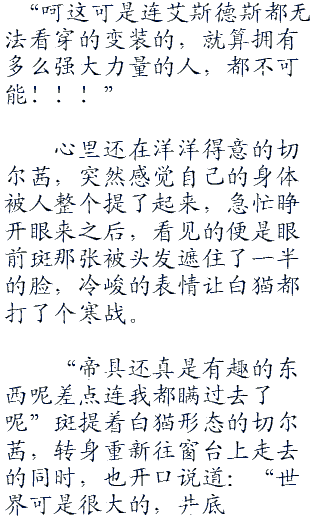 “呵这可是连艾斯德斯都无
法看穿的变装的，就算拥有
多么强大力量的人，都不可
能！！！”
心里还在洋洋得意的切
尔茜，突然感觉自己的身体
被人整个提了起来，急忙睁
开眼来之后，看见的便是眼
前斑那张被头发遮住了一半
的脸，冷峻的表情让白猫都
打了个寒战。
“帝具还真是有趣的东
西呢差点连我都瞒过去了
呢”斑提着白猫形态的切尔
茜，转身重新往窗台上走去
的同时，也开口说道：“世
界可是很大的，井底